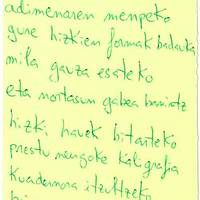 adimenaren menpeko
gure hizkien formak badauka
mila gauza esateko
eta nortasun gabea
hizki hauek bitarteko
prestu nengoke kaligrafia
kuadernora itzultzeko